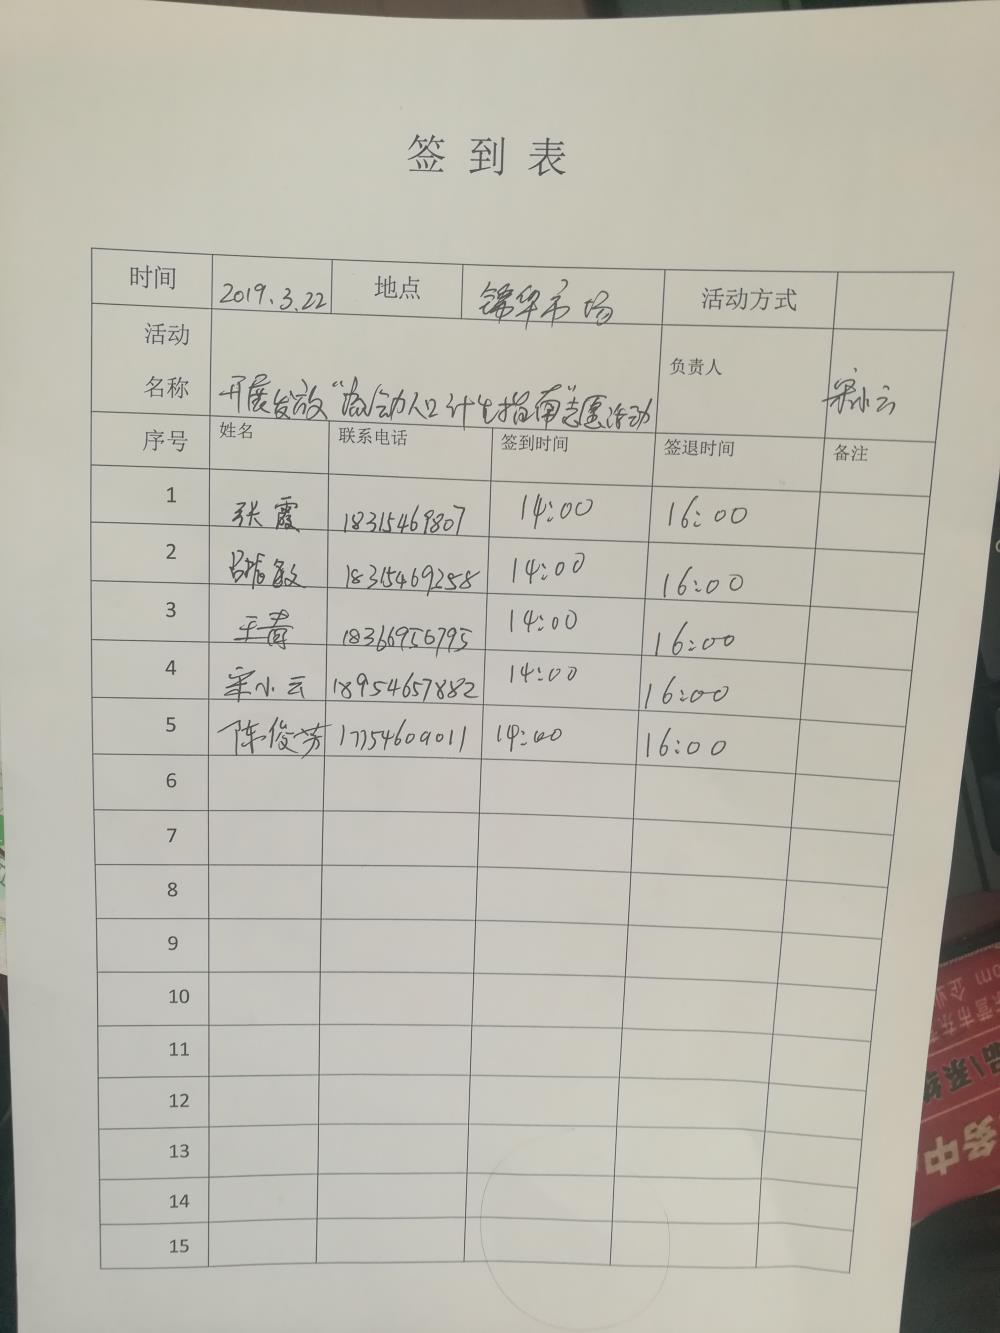 签到表
时间 2019.3.22 地点 锦华市场 活动方式
活动名称 开展发放“流动人口计生指南”志愿活动 负责人 宋小云
序号 姓名 联系电话 签到时间 签退时间 备注
1 张霞 18315469807 14:00 16:00
2 吕振敏 18315469258 14:00 16:00
3 王青 18366956795 14:00 16:00
4 宋小云 18954657882 14:00 16:00
5 陈俊芳 17754609011 14:00 16:00
6
7
8
9
10
11
12
13
14
15